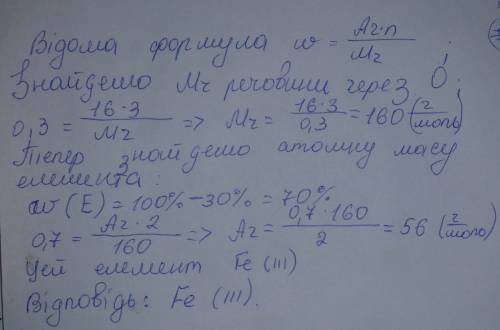 Відома формула w = Ar·n / Mr ;
Знайдемо Mr речовини через O;
0,3 = 16·3 / Mr => Mr = 16·3 / 0,3 = 160 (г/моль)
Тепер знайдемо атомну масу
елемента:
w (E) = 100% - 30% = 70%
0,7 = Ar·2 / 160 => Ar = 0,7·160 / 2 = 56 (г/моль)
Цей елемент Fe (III)
Відповідь: Fe (III).